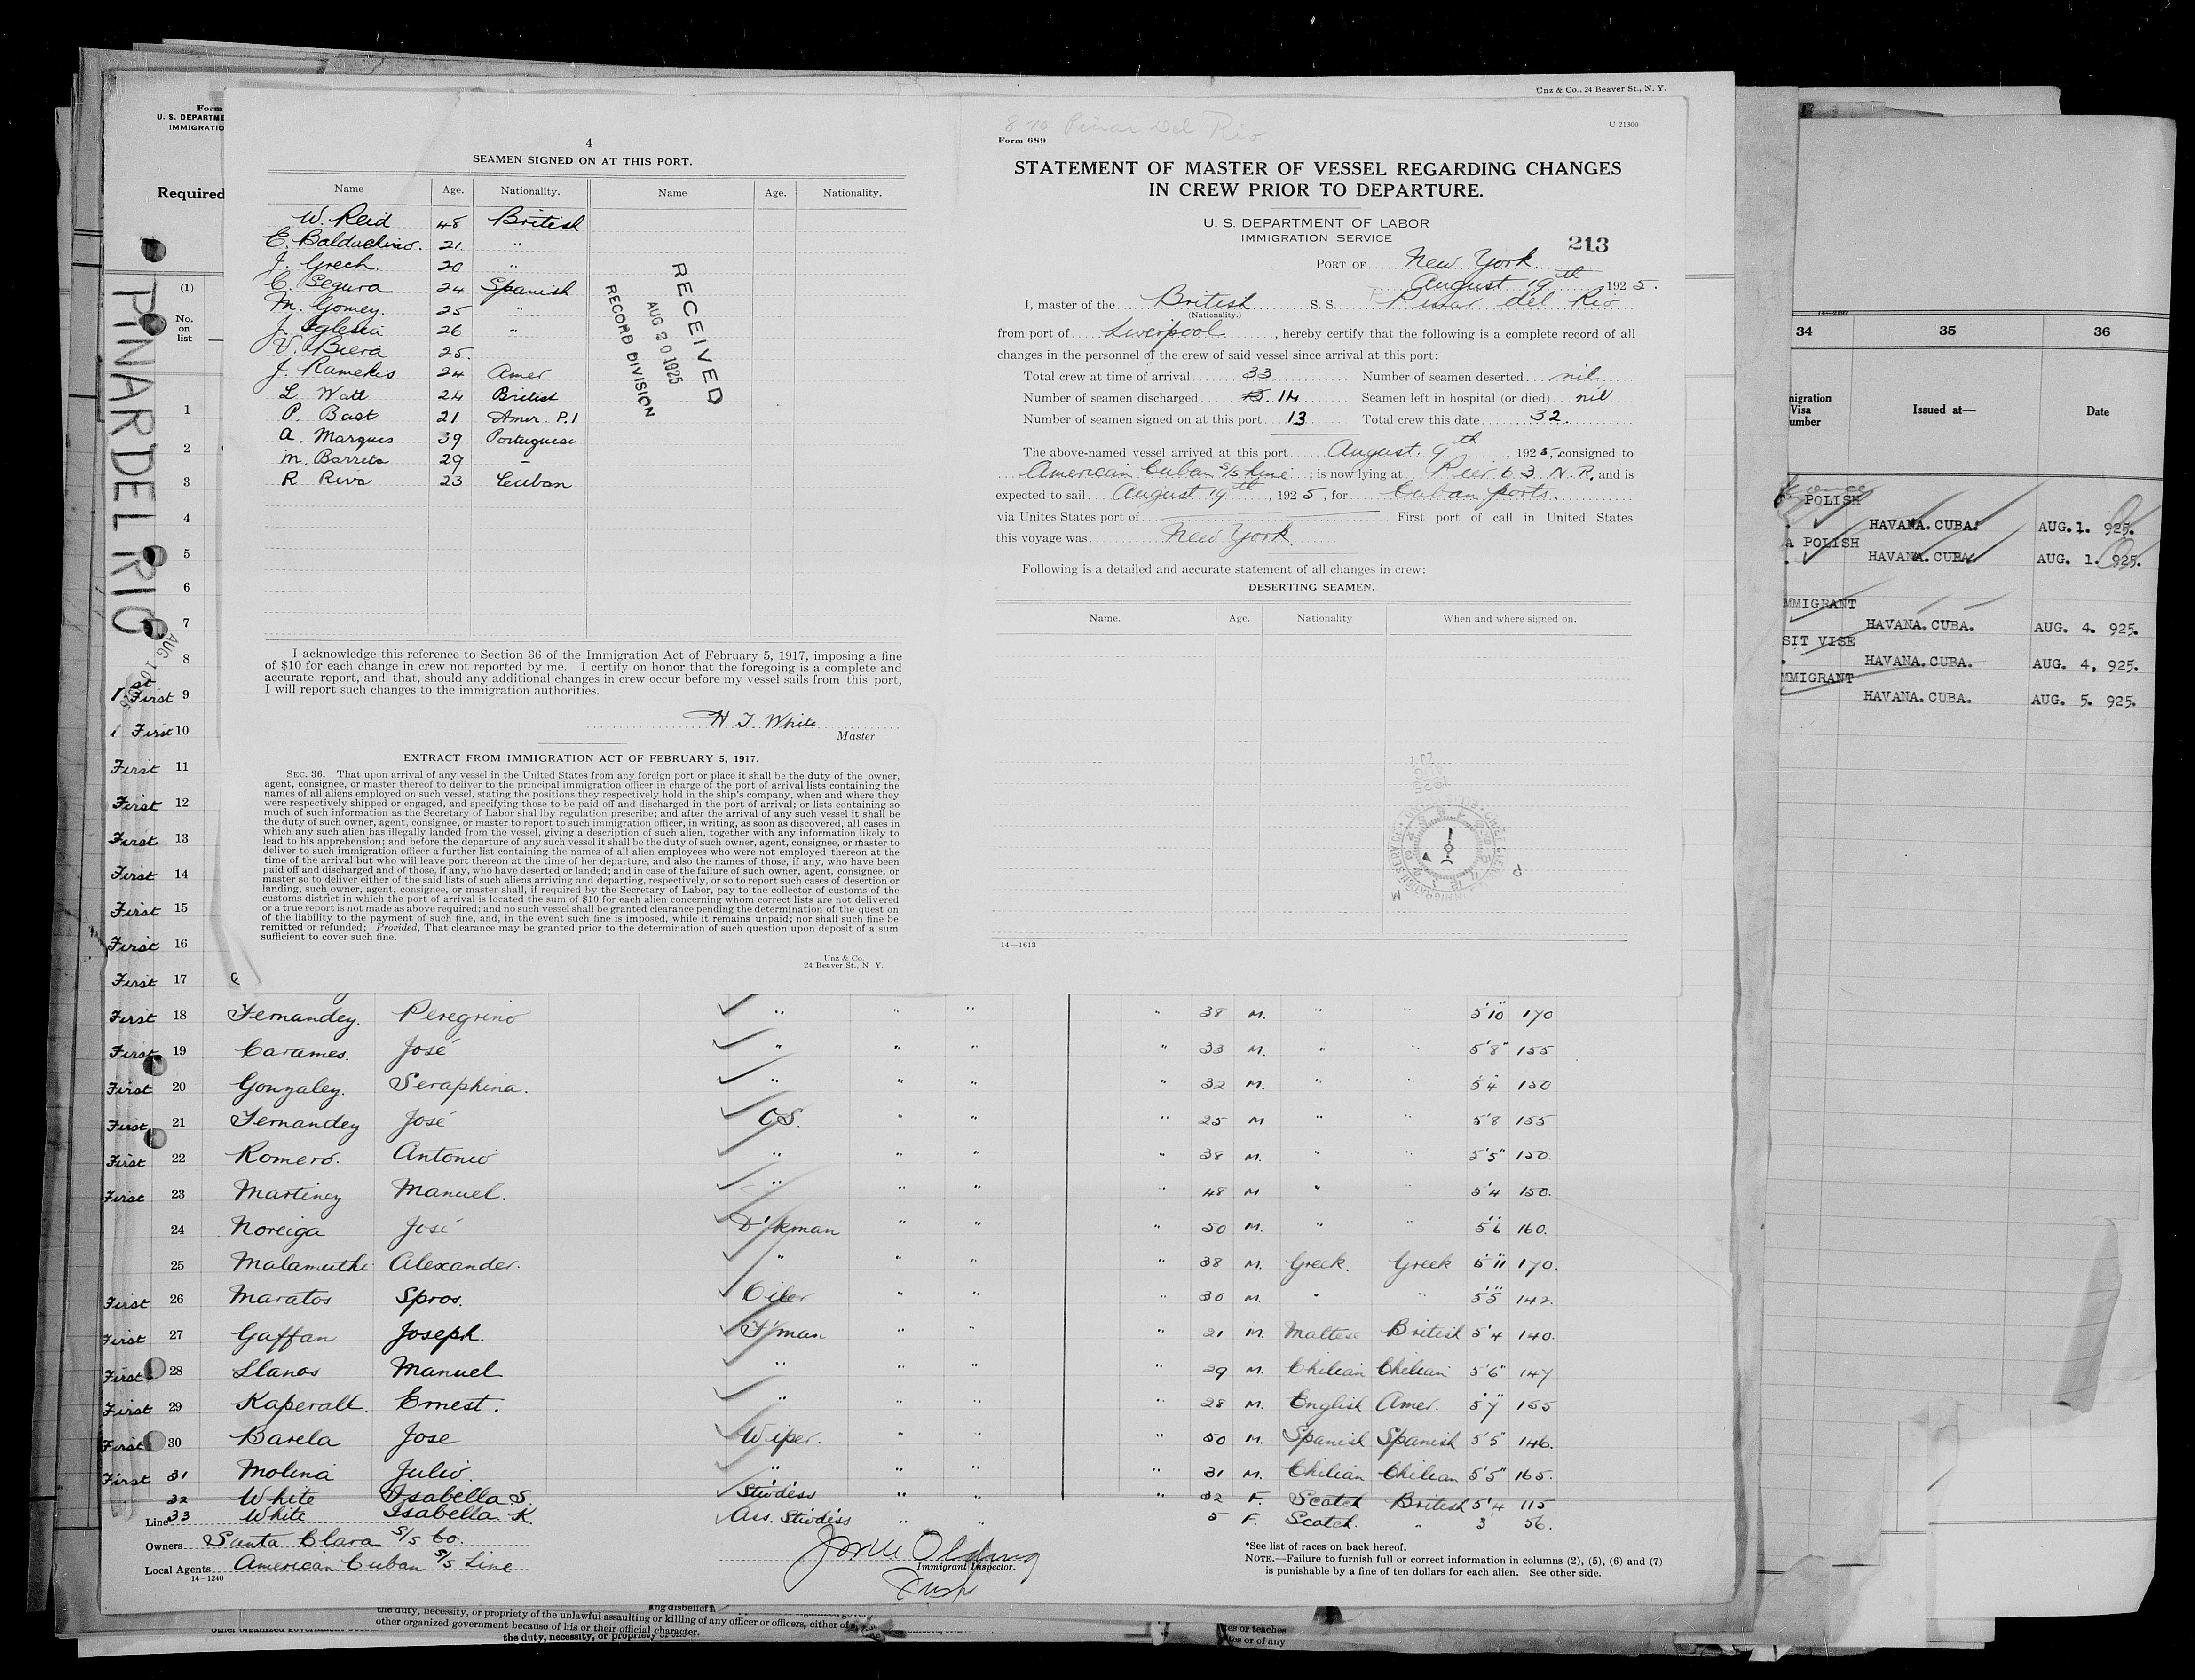 Unz & Co., 24 Beaver St., N. Y.
Form
U. S. DEPARTME
IMMIGRATIO
Required
(1)
No.
on
list
PINAR DEL RIO
1
2
3
4
5
6
7
8
1st First 9
1 First 10
First 11
First 12
First 13
First 14
First 15
First 16
First 17
4
SEAMEN SIGNED ON AT THIS PORT.
Name Age. Nationality. Name Age. Nationality.
W. Reid 48 British
E. Balduchino. 21. "
J. Grech. 20 "
C. Segura 24 Spanish
M. Gomez. 25 "
J. Iglesia 26 "
V. Biera 25.
J. Kamekis 24 Amer
L. Watt 24 British
P. Bast 21 Amer. P.I
A. Marques 39 Portuguese
M. Barreto 29 –
R Riva 23 Cuban
RECEIVED
AUG 20 1925
RECORD DIVISION
I acknowledge this reference to Section 36 of the Immigration Act of February 5, 1917, imposing a fine
of $10 for each change in crew not reported by me. I certify on honor that the foregoing is a complete and
accurate report, and that, should any additional changes in crew occur before my vessel sails from this port,
I will report such changes to the immigration authorities.
H J White
Master
EXTRACT FROM IMMIGRATION ACT OF FEBRUARY 5, 1917.
SEC. 36. That upon arrival of any vessel in the United States from any foreign port or place it shall be the duty of the owner,
agent, consignee, or master thereof to deliver to the principal immigration officer in charge of the port of arrival lists containing the
names of all aliens employed on such vessel, stating the positions they respectively hold in the ship's company, when and where they
were respectively shipped or engaged, and specifying those to be paid off and discharged in the port of arrival; or lists containing so
much of such information as the Secretary of Labor shal lby regulation prescribe; and after the arrival of any such vessel it shall be
the duty of such owner, agent, consignee, or master to report to such immigration officer, in writing, as soon as discovered, all cases in
which any such alien has illegally landed from the vessel, giving a description of such alien, together with any information likely to
lead to his apprehension; and before the departure of any such vessel it shall be the duty of such owner, agent, consignee, or master to
deliver to such immigration officer a further list containing the names of all alien employees who were not employed thereon at the
time of the arrival but who will leave port thereon at the time of her departure, and also the names of those, if any, who have been
paid off and discharged and of those, if any, who have deserted or landed; and in case of the failure of such owner, agent, consignee, or
master so to deliver either of the said lists of such aliens arriving and departing, respectively, or so to report such cases of desertion or
landing, such owner, agent, consignee, or master shall, if required by the Secretary of Labor, pay to the collector of customs of the
customs district in which the port of arrival is located the sum of $10 for each alien concerning whom correct lists are not delivered
or a true report is not made as above required; and no such vessel shall be granted clearance pending the determination of the quest on
of the liability to the payment of such fine, and, in the event such fine is imposed, while it remains unpaid; nor shall such fine be
remitted or refunded; Provided, That clearance may be granted prior to the determination of such question upon deposit of a sum
sufficient to cover such fine.
Unz & Co.
24 Beaver St., N Y.
Pinar Del Rio
U 21300
Form 689
STATEMENT OF MASTER OF VESSEL REGARDING CHANGES
IN CREW PRIOR TO DEPARTURE.
U. S. DEPARTMENT OF LABOR
IMMIGRATION SERVICE
213
PORT OF New York
August 19th 1925.
I, master of the British S. S. Pinar del Rio
(Nationality.)
from port of Liverpool, hereby certify that the following is a complete record of all
changes in the personnel of the crew of said vessel since arrival at this port:
Total crew at time of arrival 33 Number of seamen deserted nil
Number of seamen discharged 14 Seamen left in hospital (or died) nil
Number of seamen signed on at this port 13 Total crew this date 32.
The above-named vessel arrived at this port August 9th, 1925, consigned to
American Cuban S/S Line; is now lying at Pier 63 N.R. and is
expected to sail August 19th, 1925, for Cuban ports.
via Unites States port of First port of call in United States
this voyage was New York.
Following is a detailed and accurate statement of all changes in crew:
DESERTING SEAMEN.
Name. Age. Nationality When and where signed on.
14—1613
34 35 36
migration
Visa
umber
Issued at— Date
POLISH
HAVANA. CUBA. AUG. 1. 925.
A POLISH
HAVANA. CUBA. AUG. 1. 925.
MMIGRANT
HAVANA. CUBA. AUG. 4. 925.
SIT VISE
HAVANA. CUBA. AUG. 4, 925.
MMIGRANT
HAVANA. CUBA. AUG. 5. 925.
First 18 Fernandez. Peregrino " " " " 38 M. " " 5'10" 170
First 19 Carames. José " " " " 33 M. " " 5'8" 155
First 20 Gonzalez. Seraphina. " " " 32 M. " " 5'4 150
First 21 Fernandez José O.S. " " " 25 M " " 5'8 155
First 22 Romero. Antonio " " " " 38 M. " " 5'5" 150.
First 23 Martinez Manuel. " " " " 48 M " 5'4 150.
24 Noreiga José D'kman " " " 50 M. " " 5'6 160.
25 Malamuthi Alexander. " " " " 38 M. Greek. Greek 5'11 170.
First 26 Maratos Spros. Oiler " " " 30 M. " " 5'5 142.
First 27 Gaffan Joseph. F'man " " " 21 M. Maltese British 5'4 140.
First 28 Llanos Manuel " " " " 29 M. Chilian Chilian 5'6" 147
First 29 Kaperalt. Ernest. " " " " 28 M. English Amer. 5'7 155
First 30 Barela Jose Wiper. " " " 50 M. Spanish Spanish 5'5" 146.
First 31 Molina Julio. " " " " 31 M. Chilian Chilian 5'5" 165.
32 White Isabella S. Stwdess " " " 32 F. Scotch British 5'4 115
Line 33 White Isabella K. Ass. Stwdess " " 5 F. Scotch. " 3 56.
Owners Santa Clara S/S Co.
Local Agents American Cuban S/S Line
14—1240
Immigrant Inspector.
*See list of races on back hereof.
NOTE.—Failure to furnish full or correct information in columns (2), (5), (6) and (7)
is punishable by a fine of ten dollars for each alien. See other side.
ang disbelief
the duty, necessity, or propriety of the unlawful assaulting or killing of any officer or officers, either of
other organized government because of his or their official character.
the duty, necessity, or propriety of the
es or teaches
tes or of any